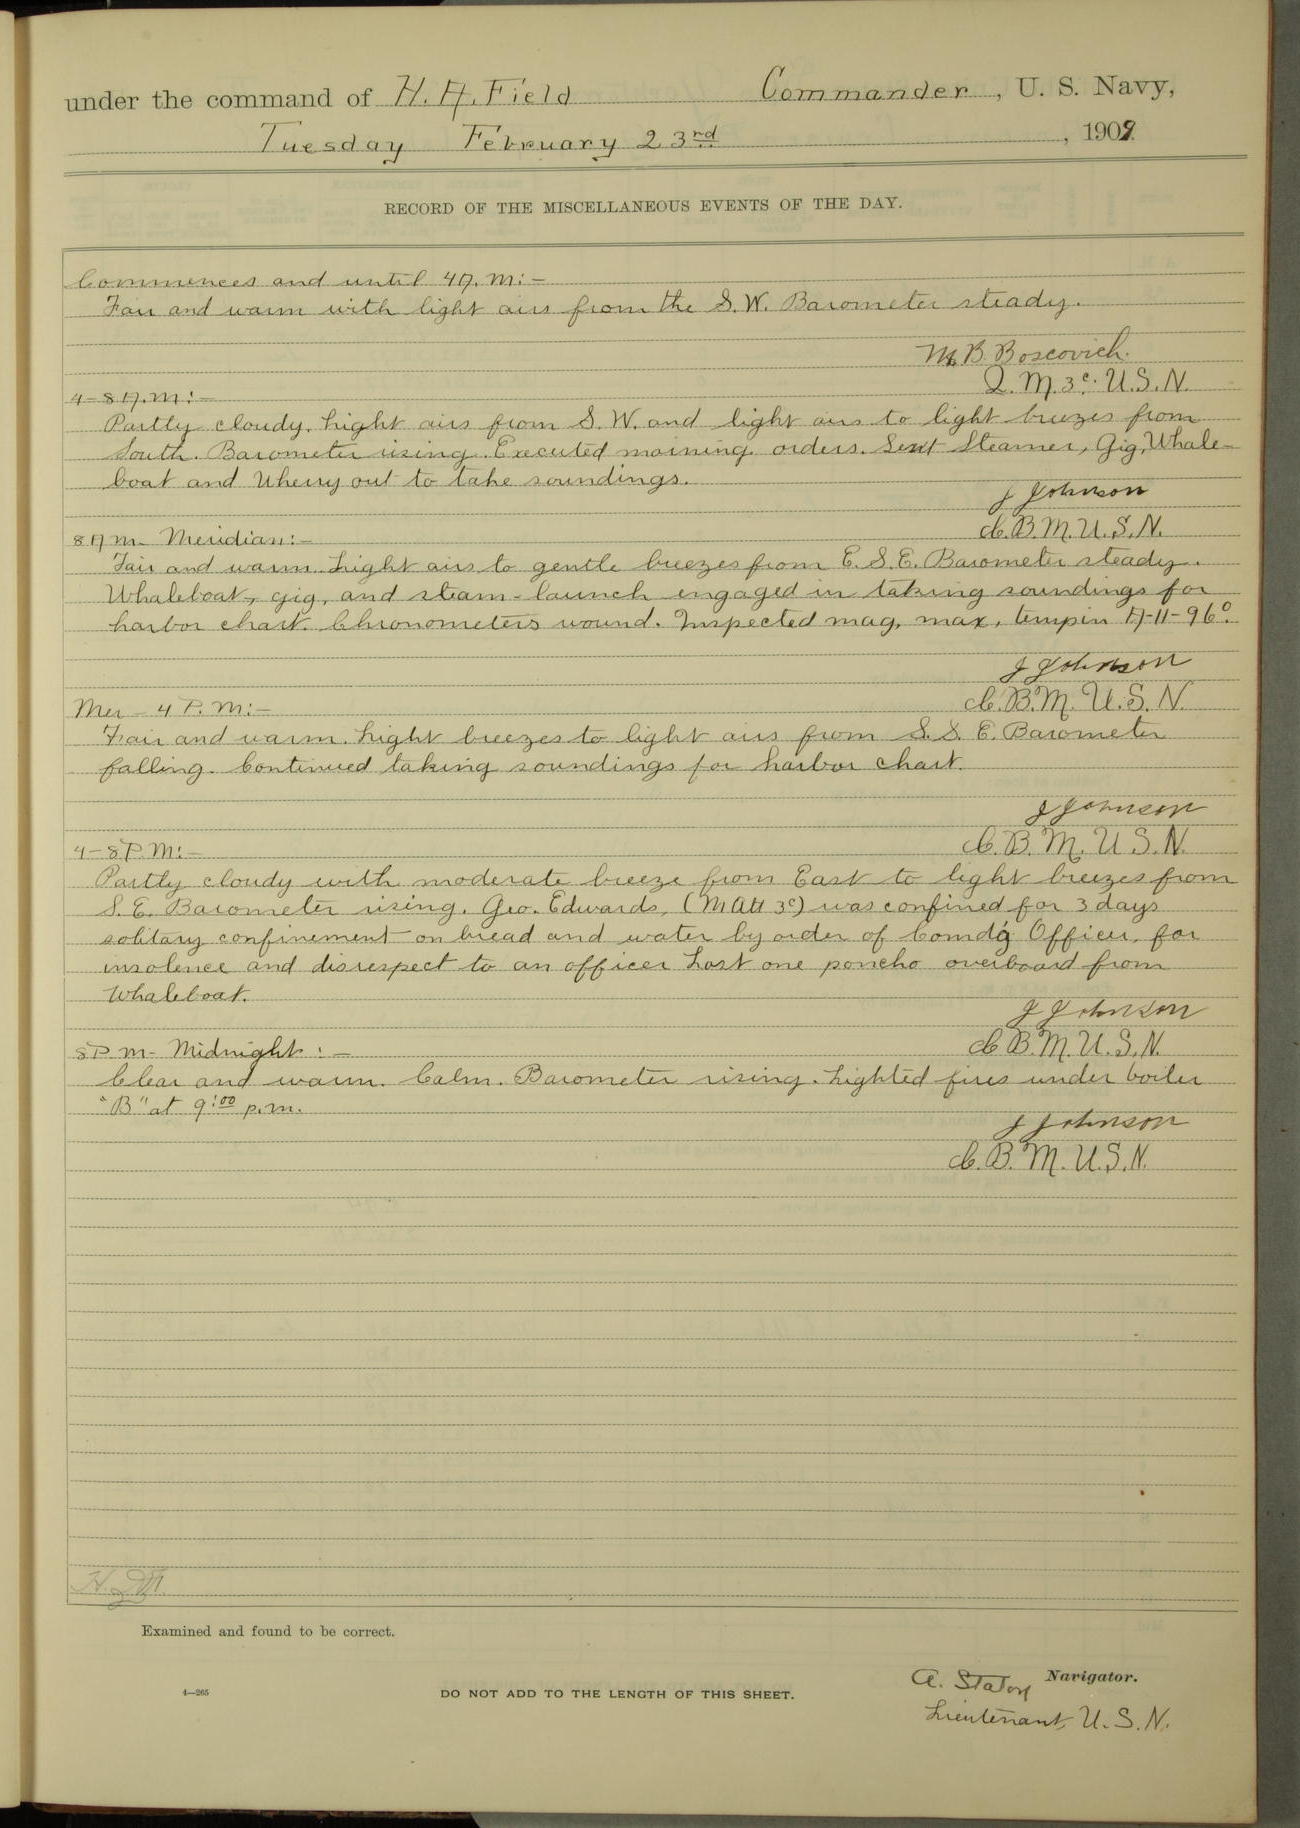 under the command of H. A. Field Commander, U. S. Navy,
Tuesday February 23rd, 1909
RECORD OF THE MISCELLANEOUS EVENTS OF THE DAY.
Commences and until 4 A. M:-
Fair and warm with light airs from the S.W. Barometer steady.
M. B. Boscovich.
Q. M. 3c. U.S.N.
4-8 A.M:-
Partly cloudy. Light airs from S.W. and light airs to light breezes from
South. Barometer rising. Executed morning orders. Sent Steamer, Gig, Whale-
boat and Wherry out to take soundings.
J Johnson
C.B.M. U.S.N.
8 A m- Meridian:-
Fair and warm. Light airs to gentle breezes from E.S.E. Barometer steady.
Whaleboat, gig, and steam-launch engaged in taking soundings for
harbor chart. Chronometers wound. Inspected mag, max, temp in A-11-96°.
J Johnson
C.B.M. U.S.N.
Mer - 4 P. M:-
Fair and warm. Light breezes to light airs from S.S.E. Barometer
falling. Continued taking soundings for harbor chart.
J Johnson
C.B.M. U.S.N.
4-8 P.M:-
Partly cloudy with moderate breeze from East to light breezes from
S.E. Barometer rising. Geo. Edwards, (M Att 3c) was confined for 3 days
solitary confinement on bread and water by order of Comd'g Officer, for
insolence and disrespect to an officer Lost one poncho overboard from
Whaleboat.
J Johnson
C.B.M. U.S.N.
8 P. m- Midnight:-
Clear and warm. Calm. Barometer rising. Lighted fires under boiler
"B" at 9:00 p.m.
J Johnson
C.B.M. U.S.N.
Examined and found to be correct.
A. Staton Navigator.
4—265 DO NOT ADD TO THE LENGTH OF THIS SHEET.
Lieutenant, U.S.N.